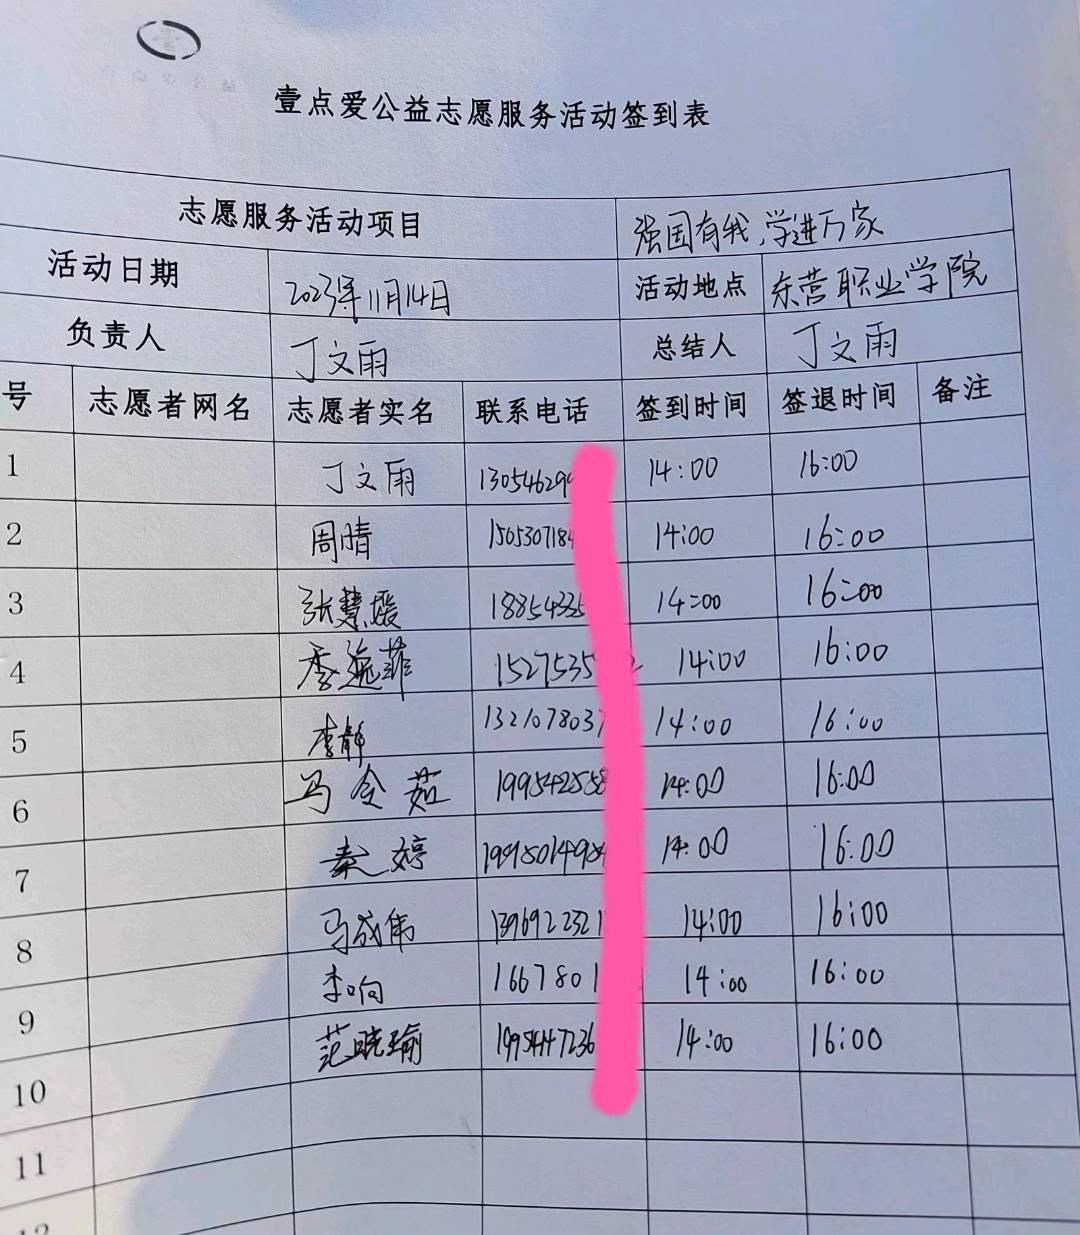 壹点爱公益志愿服务活动签到表
志愿服务活动项目 强国有我,学进万家
活动日期 2023年11月14日 活动地点 东营职业学院
负责人 丁文雨 总结人 丁文雨
号 志愿者网名 志愿者实名 联系电话 签到时间 签退时间 备注
1 丁文雨 13054629 14:00 16:00
2 周晴 150530718 14:00 16:00
3 张慧媛 1885433 14:00 16:00
4 季迤菲 1527535 14:00 16:00
5 李静 1321078037 14:00 16:00
6 马令茹 199542558 14:00 16:00
7 秦婷 14:00 16:00
8 马成伟 1396922321 14:00 16:00
9 李响 1667801 14:00 16:00
10 范晓瑜 14:00 16:00
11
12